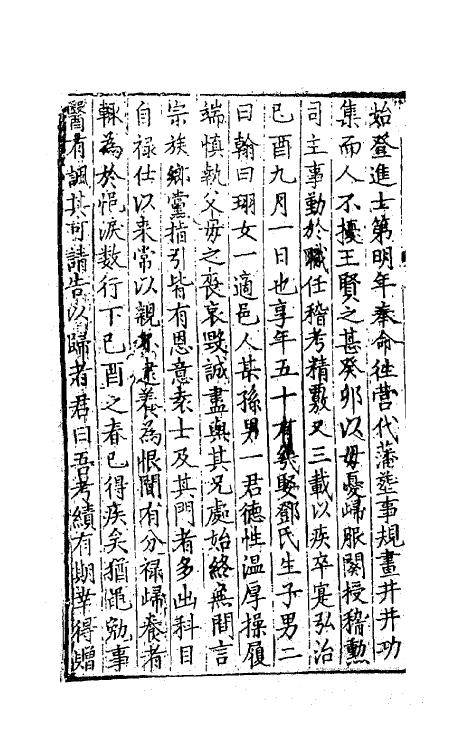 始登進士第明年奉命徃營代藩塋事規畫井井功
集而人不擾王賢之甚癸卯以毋憂歸服闋授稽勲
司主事勤於職任稽考精覈又三載以疾卒寔弘治
己酉九月一日也享年五十有幾娶鄧氏生子男二
曰翰曰翊女一適邑人某孫男一君德性温厚操履
端慎執父毋之喪哀毁誠盡與其兄處始終無間言
宗族鄉黨指引皆有恩意來士及其門者多出科目
自禄仕以来常以親不逮養為恨聞有分禄歸養者
輙為於悒淚数行下己酉之春已得疾矣猶黽勉事
醫有諷其可請告以歸者君曰吾考績有期幸得贈